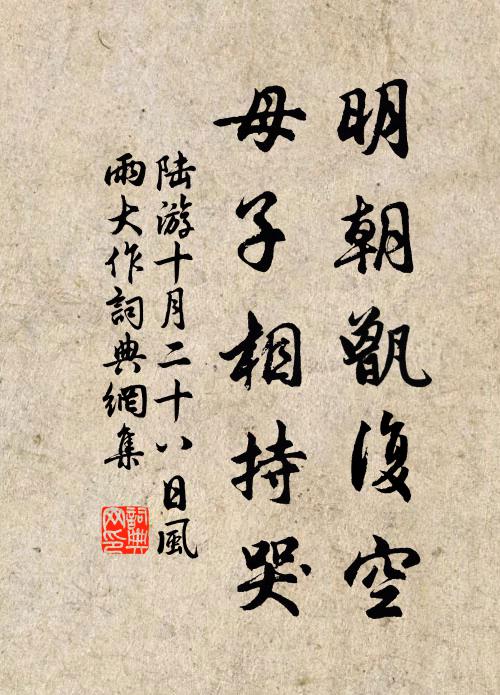 明朝甑復空
母子相持哭
陆游十月二十八日風
雨大作詞典網集
詞典
网印